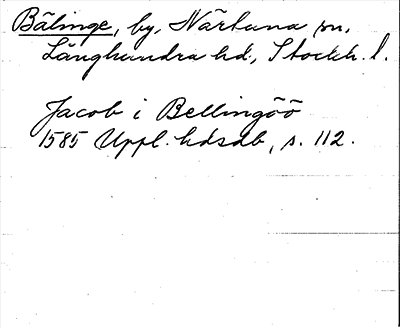 Bälinge, by, Närtuna sn,
Långhundra hd., Stockh. l.
Jacob i Bellingöö
1585 Uppl. hdsdb, s. 112.